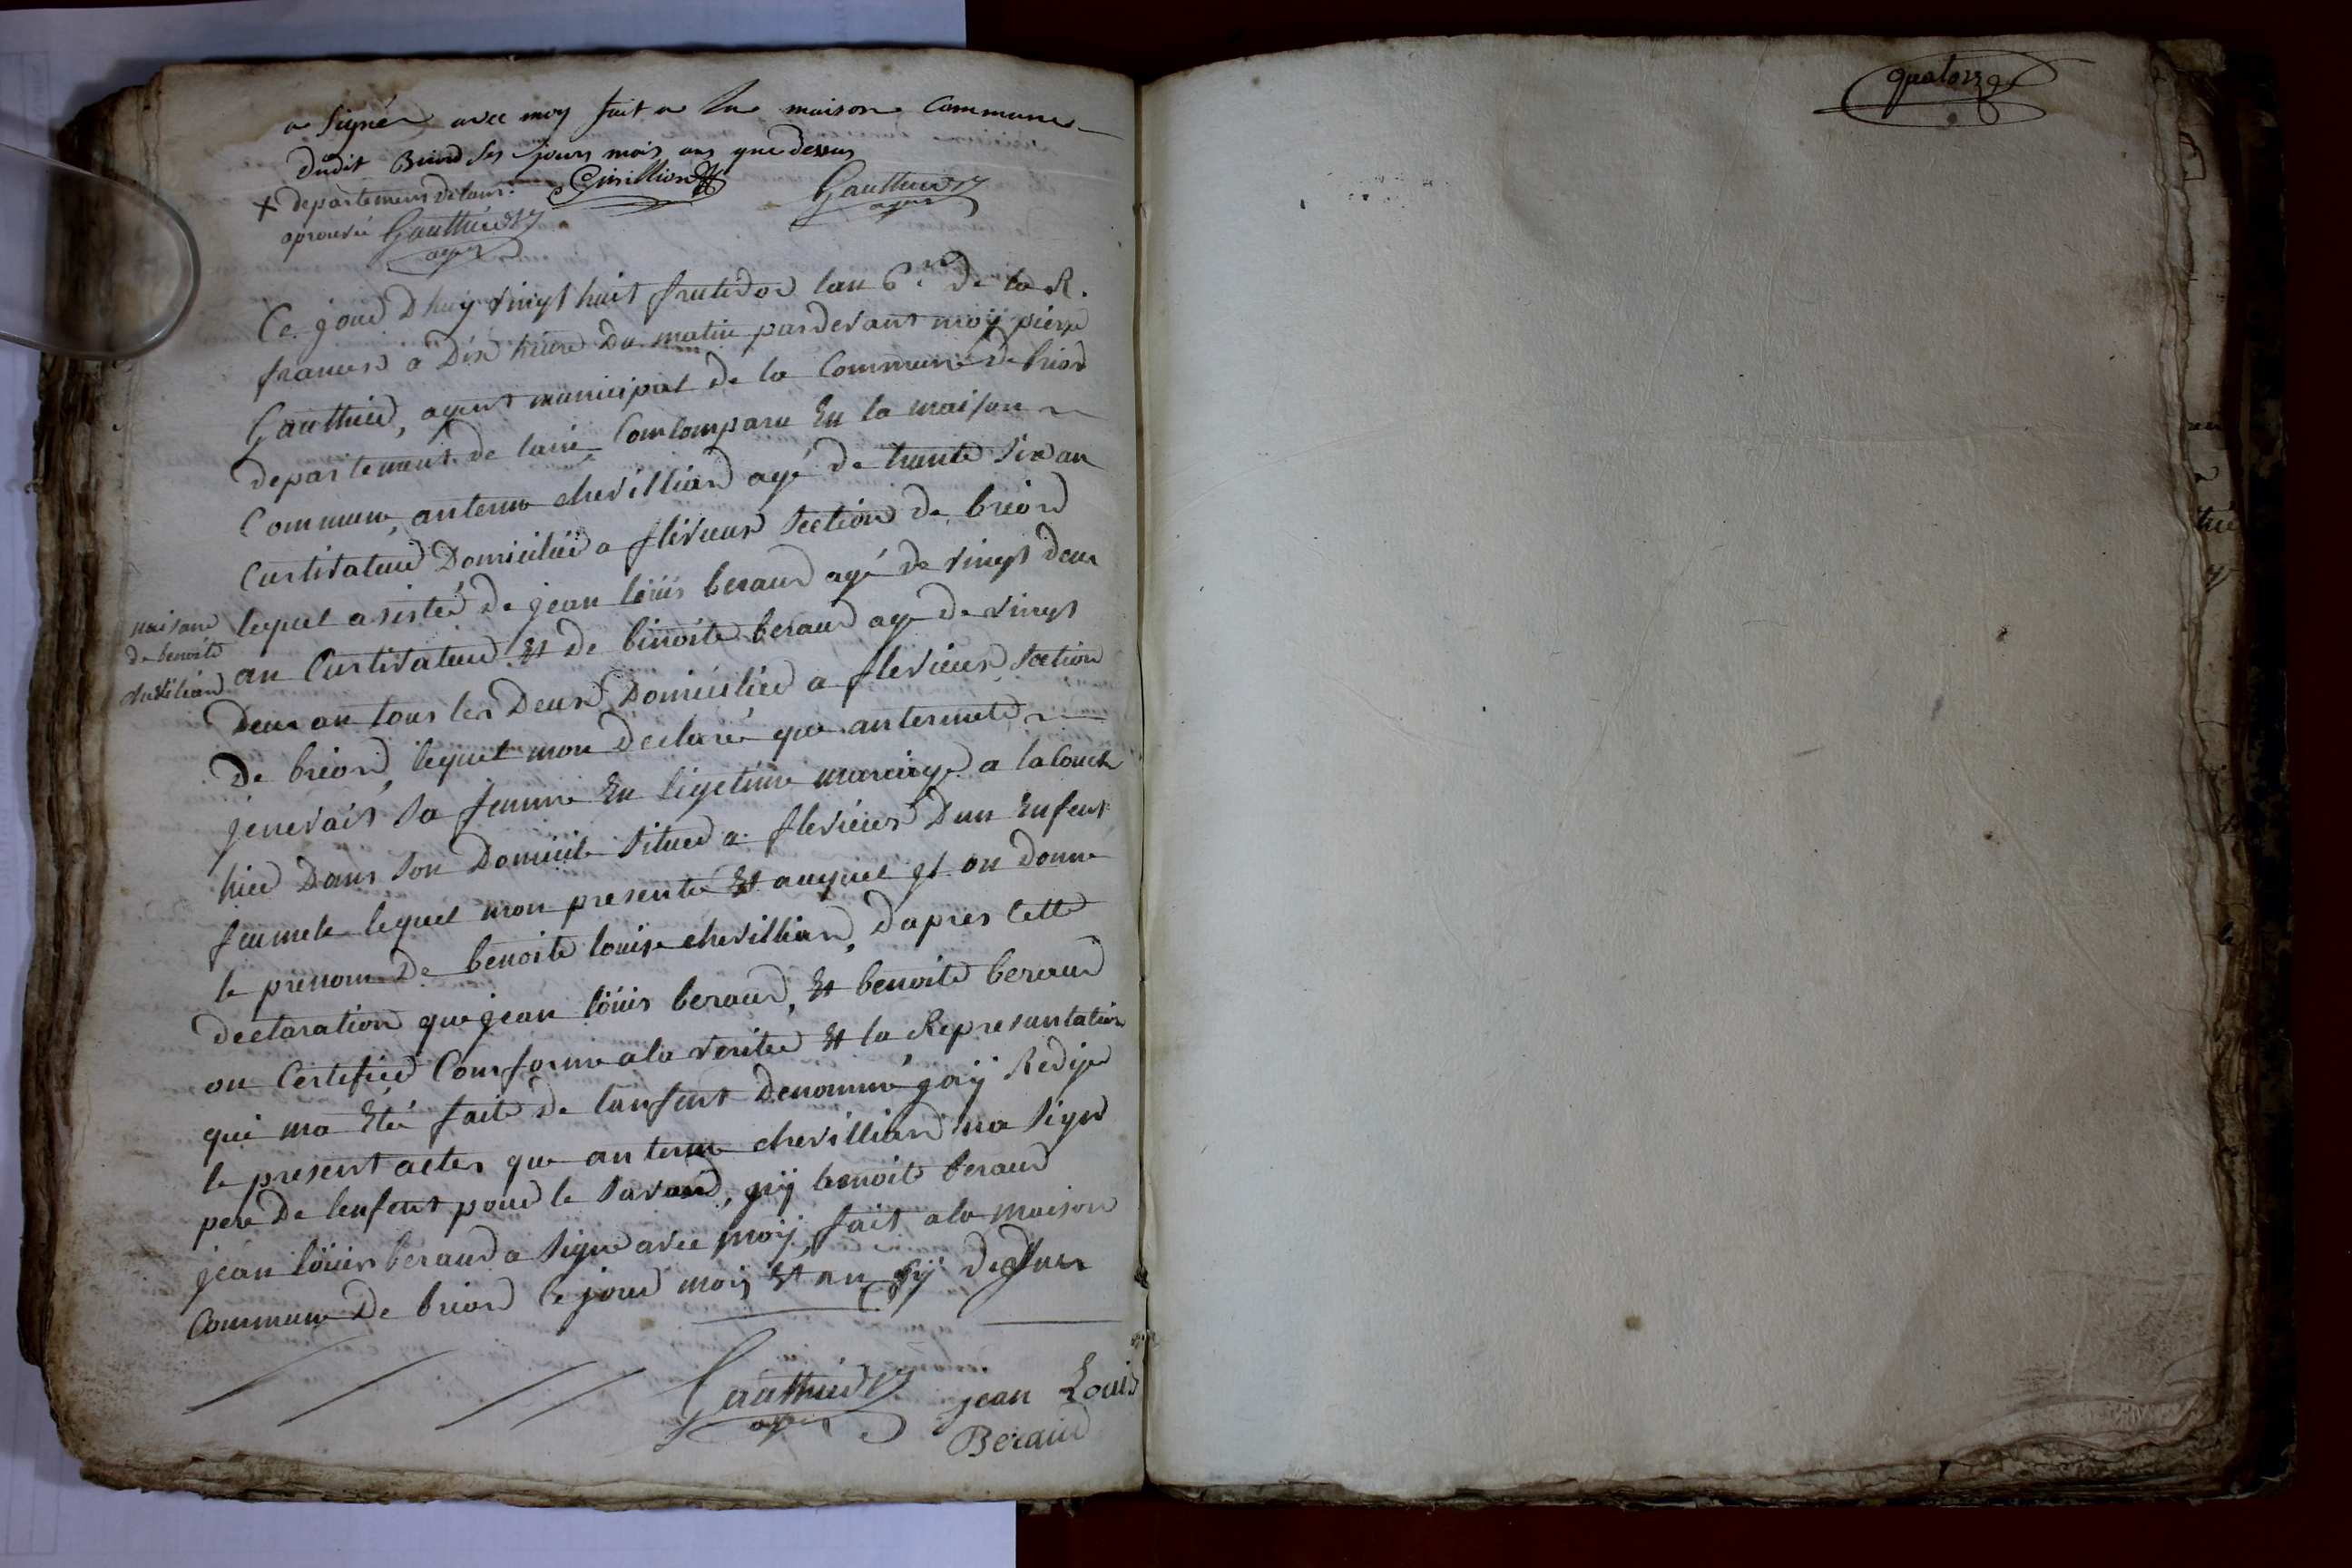 a signér avec moy fait a la maison Commune
dudit Briord les jours mois ans que dessus
+ departemens delain.
aprouvée Gauthier
agent
Gauthier
agent
Ce jourd dhuy vingt huit frutidor lan 6.e de la R.
francese a Dix heure du matin pardevant moÿ pierre
Gauthier, agent municipal de la Commune de briord
departement de lain Comcomparu En la maison
Commune, antenne chevillian agé de trante Six an
Curtivateur Domiciliéé a flevieux Section de briord
lequel asistéé de jean loüis beraud agé de vingt deux
an Curtivateur Et de binoite beraud agé de vingt
Deux an tous les Deux Domicilied a flevieux Section
De briord, lequel mon declaré que antennete
jenevais sa femme En ligetime mariage a la Couch
hier Dans son Domicile situed a flevieux Dun Enfent
fumele lequel mon presenté Et auquel jl on donne
le prenom De benoite louise chevillian, daprès Cette
declaration que jean loüis beraud, Et benoite beraud
on Certified Comforme ala verited Et la Representation
qui ma Etéé faite de lanfent denommé jaÿ Redige
le present actes que antenne chevillian na Signe
pere De lenfent pour le savoir, nÿ benoite beraud
jean loüis beraud a signe avec moÿ, fait ala maison
Commune De briord le jour mois Et an sÿ Desus
naisance
de benoite
chevilian
Gauthier
agent
jean Louis
Beraud
quatorze